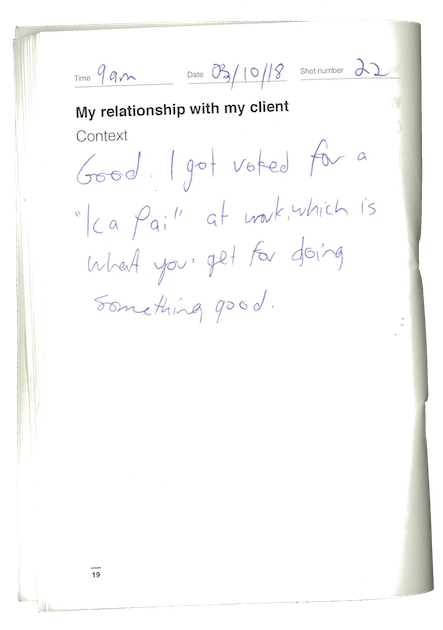 Time 9am Date 03/10/18 Shot number 22
My relationship with my client
Context
Good. I got voted for a
"Ka Pai" at work, which is
what you get for doing
something good.
19